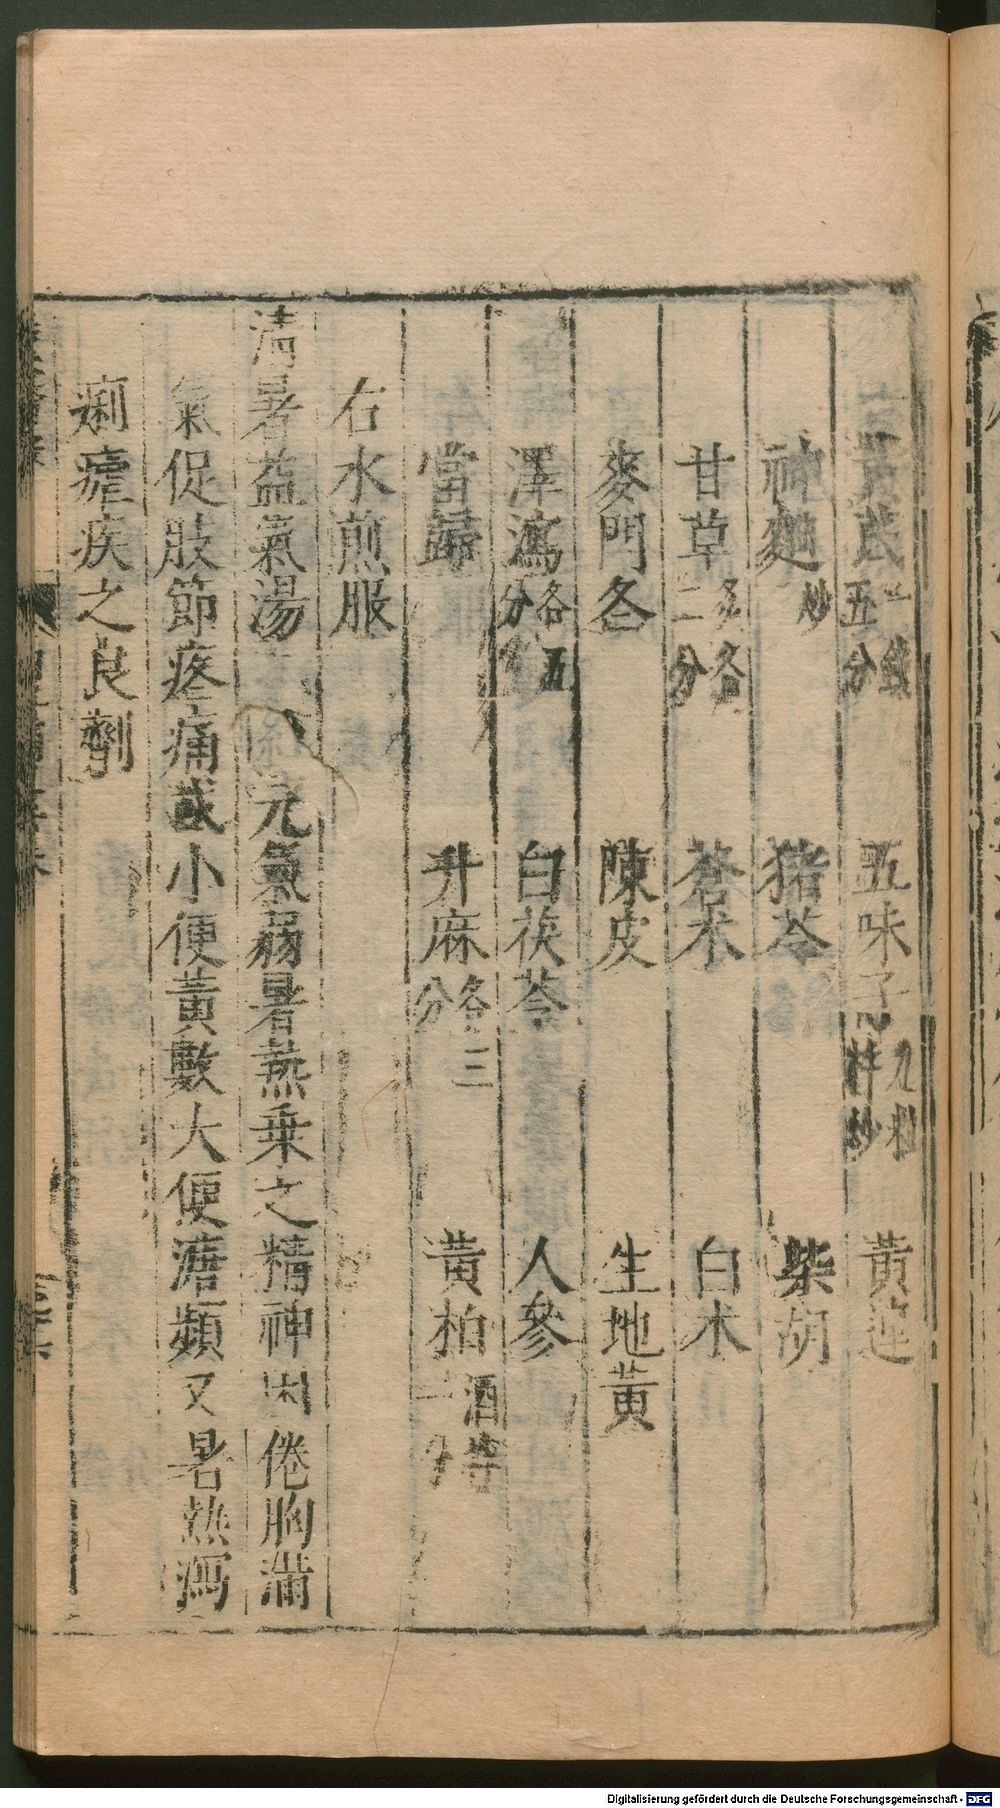 黃芪一錢五分　五味子九粒杵炒　黃連
神麯炒　猪苓　柴胡
甘草炙各二分　蒼术　白术
麥門冬　陳皮　生地黃
澤瀉各五分　白茯苓　人參
當歸　升麻各三分　黃柏酒　一分
右水煎服
清暑益氣湯　元氣弱暑熱乗之精神困倦胸滿
氣促肢節疼痛或小便黃數大便溏頻又暑熱瀉
痢瘧疾之良劑
Digitalisierung gefördert durch die Deutsche Forschungsgemeinschaft - DFG